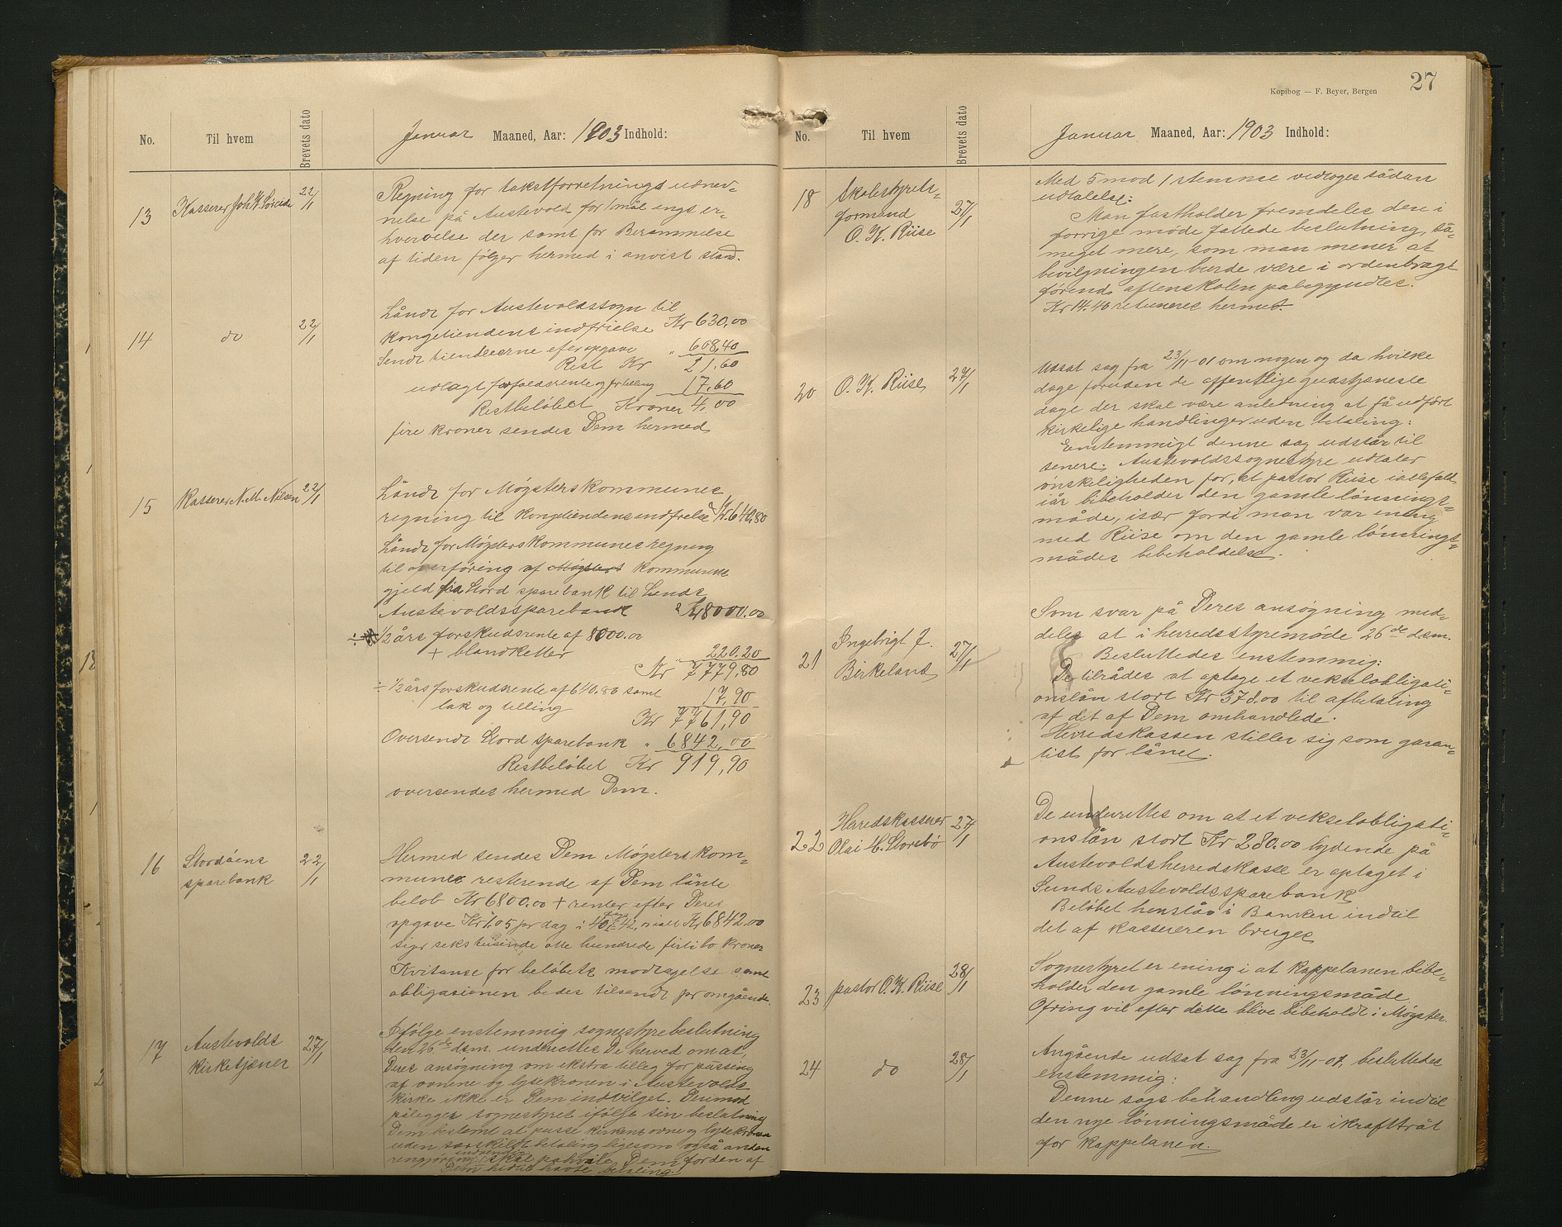 No. Til hvem Brevets dato Januar Maaned, Aar: 1903 Indhold:
13 Kasserer Joh. 22/1 Regning for takstforretnings udnev-
nelse på Austevold for 1 mål engs er-
hvervelse der samt for Berammelse
af tiden følger hermed i anvist stand.
14 do 22/1 Lånt for Austevoldssogn til
kongetiendens indfrielse Kr 630,00
Sendt tiendeeierne efter opgave " 608,40
Rest Kr 21,60
udlagt forfaldsrente og 17,60
Restbeløbet Kroner 4,00
fire kroner sendes Dem hermed
15 Kasserer Nils Nilsen 22/1 Lånt for Møgsters kommunes
regning til kongetiendens indfrielse Kr. 640,80
Lånt for Møgsters kommunes regning
til overføring af Møgsters kommunes
gjeld fra Stord sparebank til Sunds
Austevolds sparebank 8000.00
÷ 1/2 års forskudsrente af 8000.00
+ blanketter 220.20
Kr 7779,80
÷ 1/2 års forskudsrente af 640.80 samt
lak og telling 17,90
Kr 7761,90
Oversendt Stord sparebank " 6842,00
Restbeløbet Kr 919,90
oversendes hermed Dem.
16 Stordøens
sparebank 22/1 Hermed sendes Dem Møgsters kom-
munes resterende af Dem lånte
beløb Kr 6800.00 + renter efter Deres
opgave Kr 1.05 pr dag i 40 dage 42, sier Kr 6842.00
sigr seks tusinde otte hundrede firti to kroner
Kvitanse for beløbets modtagelse samt
obligasionen bedes tilsendt pr omgående.
17 Austevolds
kirketjener 27/1 Ifølge enstemmig sognestyrebeslutning
den 26de dsm. underrettes De herved om at
Deres ansøgning om ekstra tilleg for pussing
af ovnene og lysekronen i Austevolds
kirke ikke er Dem indvilget. Derimod
pålegger sognestyret ifølge sin beslutning
Dem bestemt at pusse kirkens ovne og lysekrone
uden særskilt betaling ligesom også anden
rengjøring indvendig skal påhvile Dem for den af
Dem hidtil havte betaling.
Kopibog — F. Beyer, Bergen 27
No. Til hvem Brevets dato Januar Maaned, Aar: 1903 Indhold:
18 Skolestyrets-
formand
O. K. Riise 27/1 Med 5 mod 1 stemme vedtoges sådan
udtalelse:
Man fastholder fremdeles den i
forrige møde fattede beslutning, så-
meget mere, som man mener at
bevilgningen burde være i orden bragt
førend aftenskolen påbegyndtes.
Kr 14.40 retuneres hermed.
20 O. K. Riise 27/1 Udsat sag fra 23/11-01 om nogen og da hvilke
dage foruden de offentlige gudstjeneste
dage der skal være anledning at få udført
kirkelige handlinger uden betaling:
Enstemmigt denne sag udstår til
senere. Austevoldssognestyre udtaler
ønskeligheden for, at pastor Riise ialfald
iår bibeholder den gamle lønnings-
måde, især fordi man var enig
med Riise om den gamle lønnings-
mådes bibeholdelse.
21 Ingebrigt J.
Birkeland 27/1 Som svar på Deres ansøgning med-
deles at i herredsstyremøde 26de dsm.
Besluttedes enstemmig:
De tilrådes at optage et vekselobligati-
onslån stort Kr 370.00 til afbetaling
af det af Dem omhandlede.
Herredskassen stiller sig som garan-
tist for lånet.
22 Herredskasserer
Olai H. Storebø 27/1 De underrettes om at et vekselobligati-
onslån stort Kr 280.00 lydende på
Austevoldsherredskasse er optaget i
Sunds Austevoldssparebank
Beløbet henstår i Banken indtil
det af kassereren bruges
23 pastor O. K. Riise 28/1 Sognestyret er enig i at kappelanen bibe-
holder den gamle lønningsmåde.
Ofring vil efter dette blive bibeholdt i Møgster.
24 do 28/1 Angående udsat sag fra 23/11-01, besluttedes
enstemmig:
Denne sags behandling udstår indtil
den nye lønningsmåde er ikrafttråt
for kappelanen.